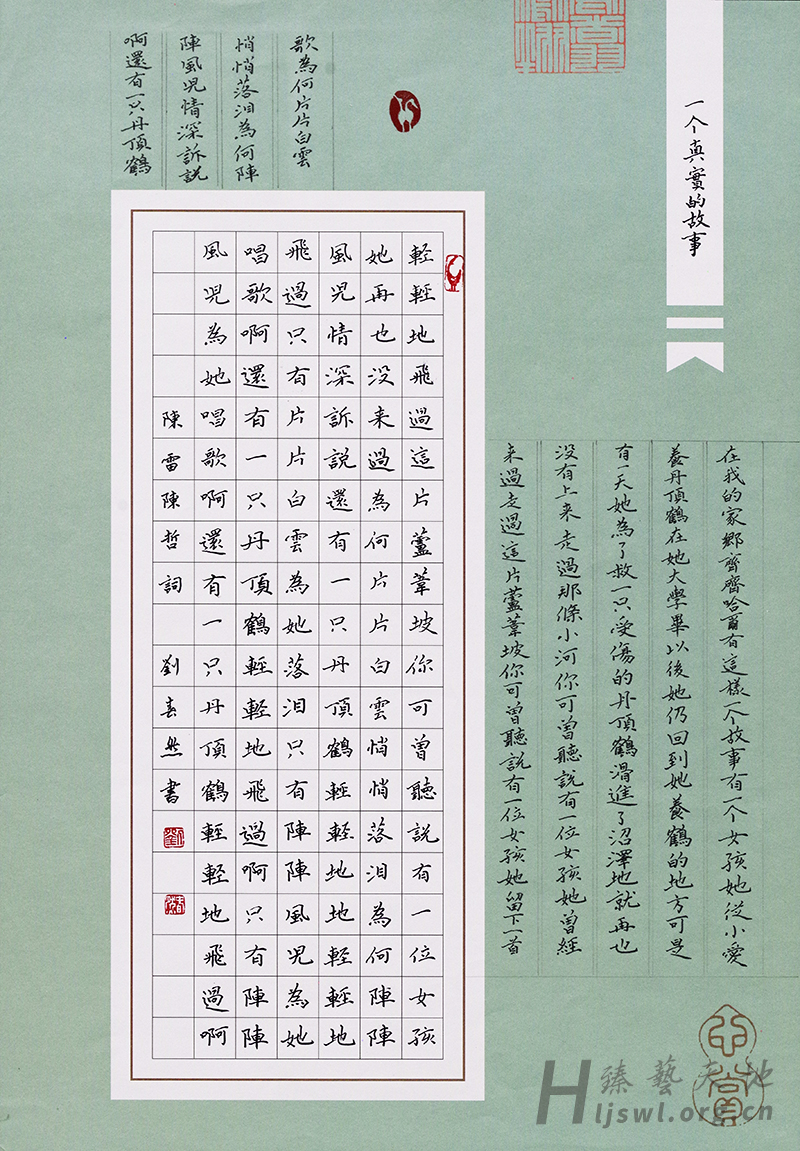 一个真實的故事
在我的家鄉齊齊哈爾有這樣一个故事有一个女孩她從小愛
養丹頂鶴在她大學畢以後她仍回到她養鶴的地方可是
有一天她為了救一只受傷的丹頂鶴滑進了沼澤地就再也
没有上来走過那條小河你可曾聽説有一位女孩她曾經
来過走過這片蘆葦坡你可曾聽説有一位女孩她留下一首
歌為何片片白雲
悄悄落泪為何陣
陣風兒情深訴説
啊還有一只丹頂鶴
輕輕地飛過這片蘆葦坡你可曾聽説有一位女孩
她再也没来過為何片片白雲悄悄落泪為何陣陣
風兒情深訴説還有一只丹頂鶴輕輕地地輕輕地
飛過只有片片白雲為她落泪只有陣陣風兒為她
唱歌啊還有一只丹頂鶴輕輕地飛過啊只有陣陣
風兒為她唱歌啊還有一只丹頂鶴輕輕地飛過啊
陳雷陳哲詞 劉春然書
臻藝天地
Hljswl.org.cn